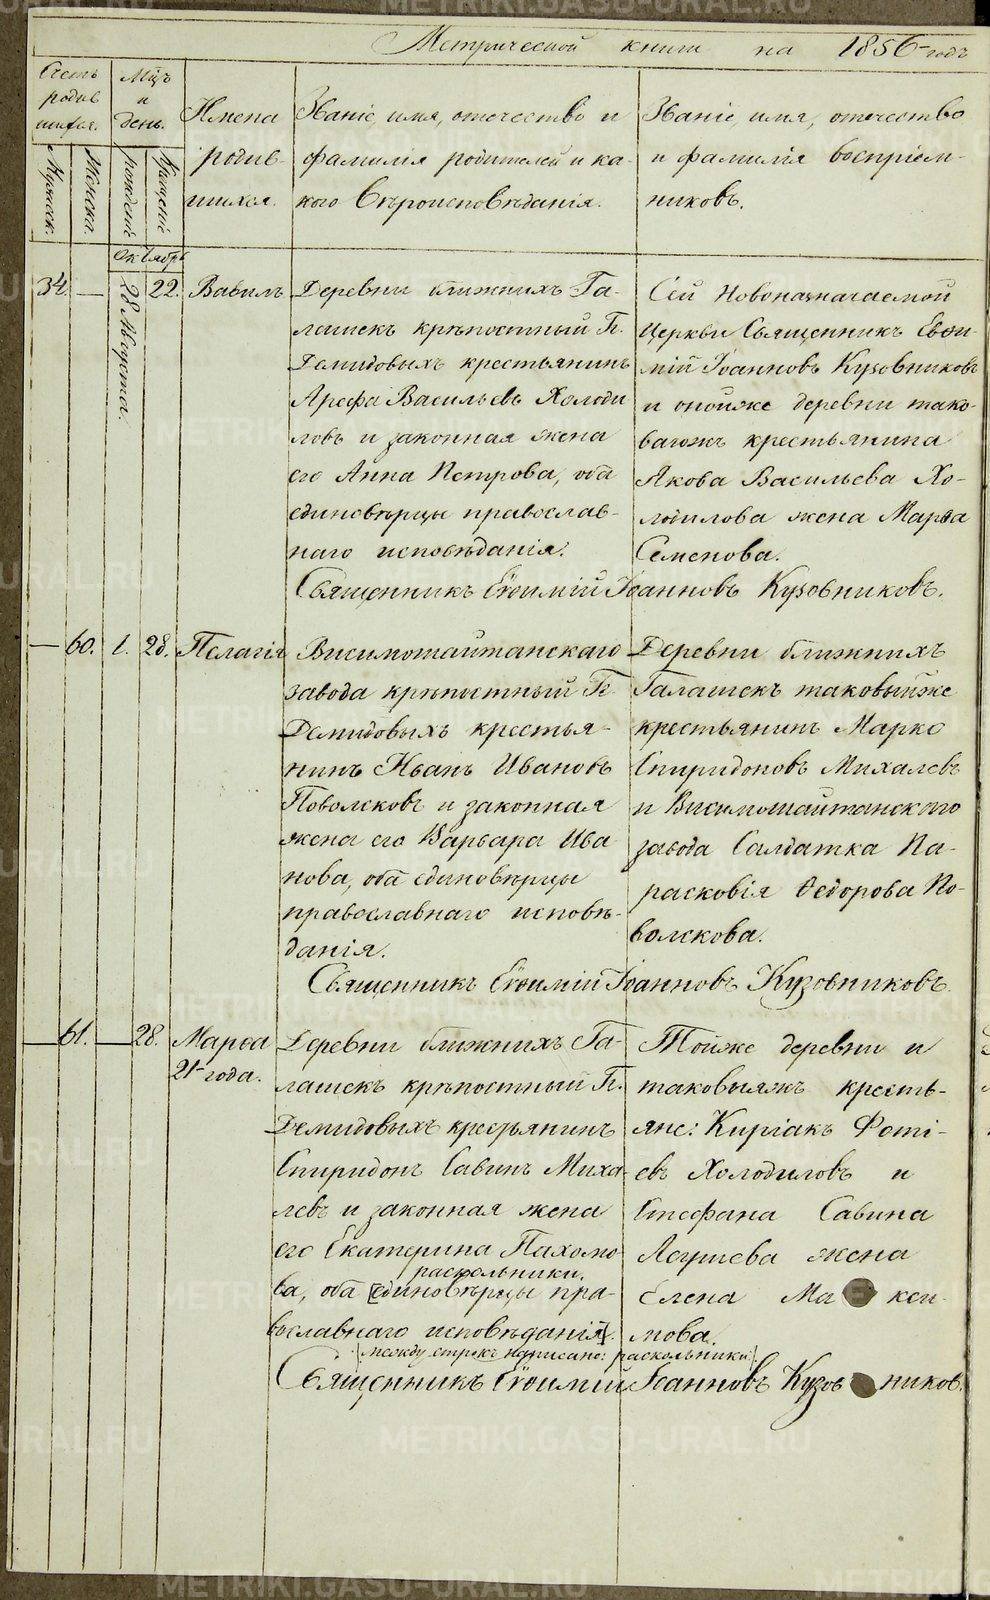 Метрической книги на 1856 годъ
Счетъ родив шихся.
Мужеск.
Женска.
Мцъ и день.
Рожденія
Крещенія
Имена родив- шихся.
Званіе, имя, отечество и
фамилія родителей и ка-
кого вѣроисповѣданія.
Званіе, имя, отечество
и фамилія воспріем-
никовъ.
Октябрь
34. — 28 Августа 22. Вавилъ
Деревни ближнихъ Га-
лашекъ крѣпостный Гг.
Демидовыхъ крестьянинъ
Арефа Васильевъ Холоди
ловъ и законная жена
его Анна Петрова, оба
единовѣрцы православ-
наго исповѣданія.
Сей Новоназначаемой
Церкви Священникъ Евѳи-
мій Іоанновъ Кузовниковъ
и онойже деревни тако-
вагожъ крестьянина
Якова Васильева Хо-
лодилова жена Марѳа
Семенова.
Священникъ Евѳимій Іоанновъ Кузовниковъ.
— 60. 1. 28. Пелагія
Висимошайтанскаго
завода крѣпостный Гг
Демидовыхъ крестья-
нинъ Иванъ Ивановъ
Поволсковъ и законная
жена его Варвара Ива
нова, оба единовѣрцы
православнаго исповѣ-
данія.
Деревни ближнихъ
Галашекъ таковыйже
крестьянинъ Марко
Спиридоновъ Михалевъ
и Висимошайтанскаго
завода Салдатка Па-
расковія Ѳедорова По-
волскова.
Священникъ Евѳимій Іоанновъ Кузовниковъ.
— 61. — 28. Марѳа
21 года.
Деревни ближнихъ Га-
лашекъ крѣпостный Гг.
Демидовыхъ крестьянинъ
Спиридонъ Савинъ Миха-
левъ и законная жена
его Екатерина Пахомо
раскольники.
ва, оба [единовѣрцы пра-
вославнаго исповѣданія].
Тойже деревни и
таковыяжъ кресть-
яне: Киріакъ Фоті-
евъ Холодиловъ и
Стефана Савина
жена
Елена Ма кси-
мова.
[между строкъ написано: раскольники].
Священникъ Евѳимій Іоанновъ Кузов никовъ.
METRIKI.GASO-URAL.RU